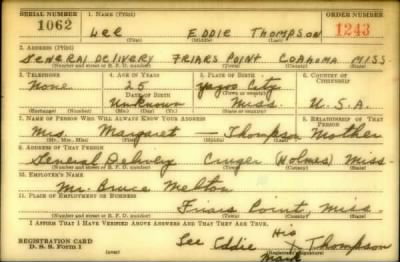 SERIAL NUMBER 1. NAME (Print) ORDER NUMBER
1062 Lee EDDIE THOMPSON 1243
(First) (Middle) (Last)
2. ADDRESS (Print)
GENERAL DELIVERY FRIARS POINT COAHOMA MISS.
(Number and street or R. F. D. number) (Town) (County) (State)
3. TELEPHONE 4. AGE IN YEARS 5. PLACE OF BIRTH 6. COUNTRY OF CITIZENSHIP
None 25 Yazoo City
DATE OF BIRTH (Town or county)
Unknown Miss. U.S.A.
(Exchange) (Number) (Mo.) (Day) (Yr.) (State or country)
7. NAME OF PERSON WHO WILL ALWAYS KNOW YOUR ADDRESS 8. RELATIONSHIP OF THAT PERSON
Mrs. Margaret — Thompson Mother
(Mr., Mrs., Miss) (First) (Middle) (Last)
9. ADDRESS OF THAT PERSON
General Delivery Cruger (Holmes) Miss.
(Number and street or R. F. D. number) (Town) (County) (State)
10. EMPLOYER'S NAME
Mr. Bruce Melton
11. PLACE OF EMPLOYMENT OR BUSINESS
Friars Point, Miss.
(Number and street or R. F. D. number) (Town) (County) (State)
I AFFIRM THAT I HAVE VERIFIED ABOVE ANSWERS AND THAT THEY ARE TRUE.
REGISTRATION CARD
D. S. S. Form 1
Lee Eddie His X Thompson
(Registrant's signature)
Mark